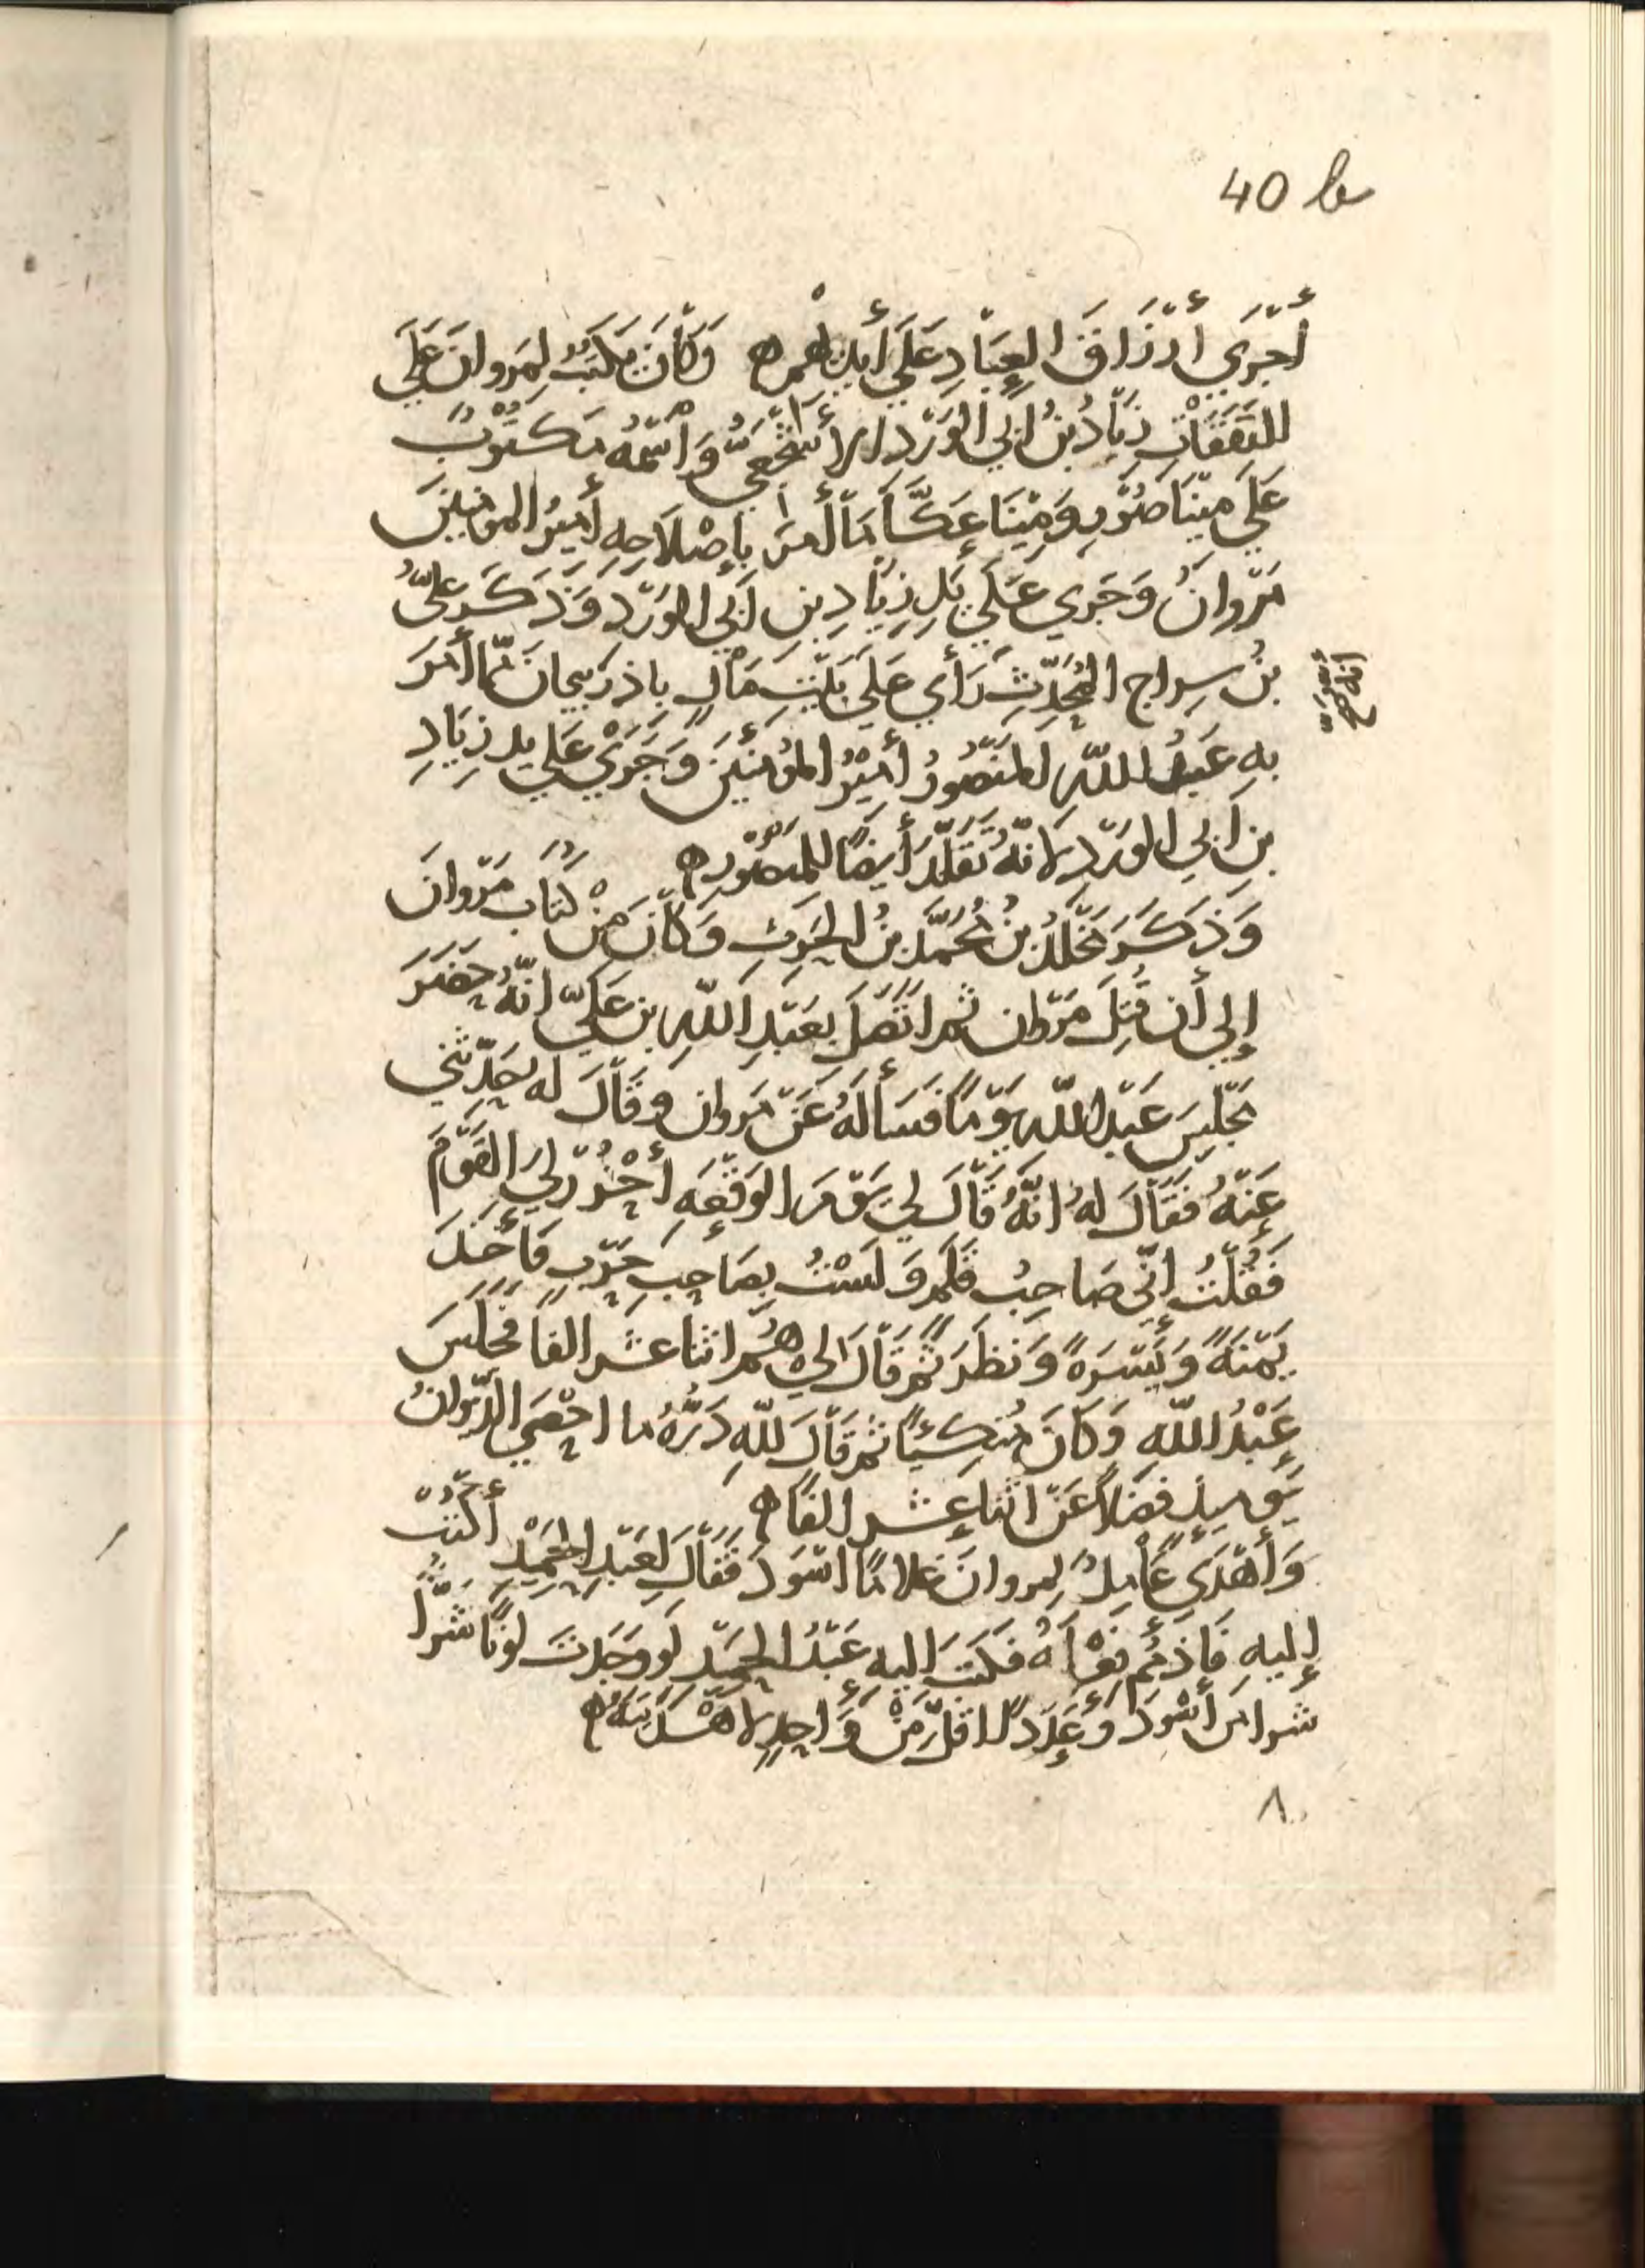 40 b
أَجْرَي أَرْزَاقَ العِبَادِ عَلَي أَيْدِيْهِمْ ه وَكَانَ يَكْتُبُ لِمَروانَ عَلَي
النَفَقَاتِ زِيَادُ بْنُ ابِي الوَرْدِ الاَشْجَعِيُّ وَاسْمُهُ مَكْتُوْبٌ
عَلَي مِيْنَا صُوْر وَمِيْنَا عَكَّا مَا أَمَرَ بِإِصْلَاحِهِ أَمِيْرُ المومِنِيْنَ
مَرْوانُ وَجَرَي عَلَي يَدِ زِيَادِ بنِ ابي الوَرْدِ وَذَكَرَ عَلِيُّ
بْنُ سِراج المُحَدِّثُ رَأَي عَلَي بَيْتِ مَالٍ باذربيجان مِمَّا أَمَرَ
أَنَّهُ صح
بِهِ عَبْدُ اللّهِ المَنْصُورُ أَمِيْرُ المُؤمِنِيْنَ وَجَرَيْ عَلَي يدِ زِيَادِ
بنِ ابي الوَرْدِ لانّهُ تَقَلَّدَ أَيضًا لِلمَنْصُوْرِ ه
وَذَكَرَ مَخْلَدُ بْنُ مُحَمَّدِ بنُ الحَرِثِ وَكَانَ مِنْ كُتَّابِ مَرْوانَ
إِلي أَن قُتِلَ مَرْوان ثم اتَّصَلَ بعَبْدِ اللّهِ بن عَلِيّ انّهُ حَضَرَ
مَجْلِسَ عَبْدِ اللّهِ يَوْمًا فَسَأَلَهُ عَنْ مَروان وَقَالَ له حَدِّثْنِي
عَنْهُ فَقَالَ لهُ انَّهُ قَالَ لِي يَوْمَ الوَقْعَهِ أُحْزُرْ لِي القَوْمَ
فَقُلْتُ إِنِّي صَاحِبُ قَلَمٍ وَلَسْتُ بِصَاحِبِ حَرْبٍ فَأَخَذَ
يَمْنَهً وَيَسْرَهً وَنَظَرَ ثُمَّ قَالَ لِي هُم اثنا عشر الفًا فَجَلَسَ
عَبْدُ اللّهِ وَكَانَ مُتكِئًا ثُمَّ قَالَ لِلّهِ دَرُّهُ ما احْصَي الدِّيْوانُ
يَوْميذٍ فَضْلًا عَنْ اثنا عشر الفًا ه
وَأَهْدَي عَامِلٌ لمروانَ غلامًا اسْوَدَ فَقَالَ لِعَبْدِ الحَمِيْدِ أُكْتُبْ
إِليهِ فَاذْمُمْ فِعْلَهُ فكَتَبَ إِليهِ عَبْدُ الحَمِيْدِ لو وَجَدْتَ لونًا شَرًّا
شرا من أَسْوَدَ وَعَدَدًا اقلَّ مِنْ وَاحِدٍ لاهْدَيْتَهُ ه
٨٠